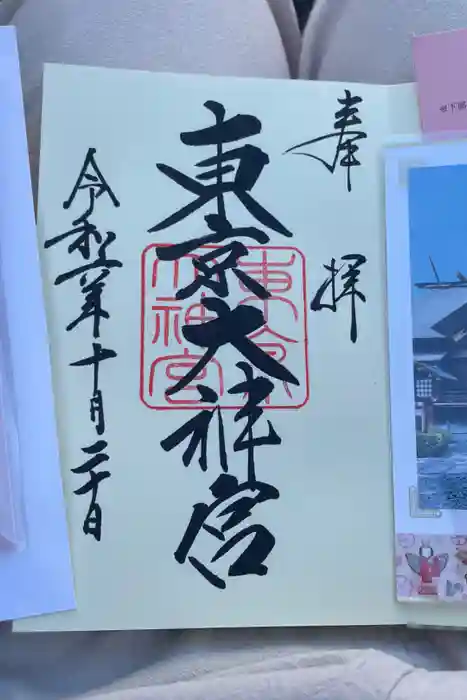 奉拝
東京大神宮
東京
大神宮
令和六年十月二十日